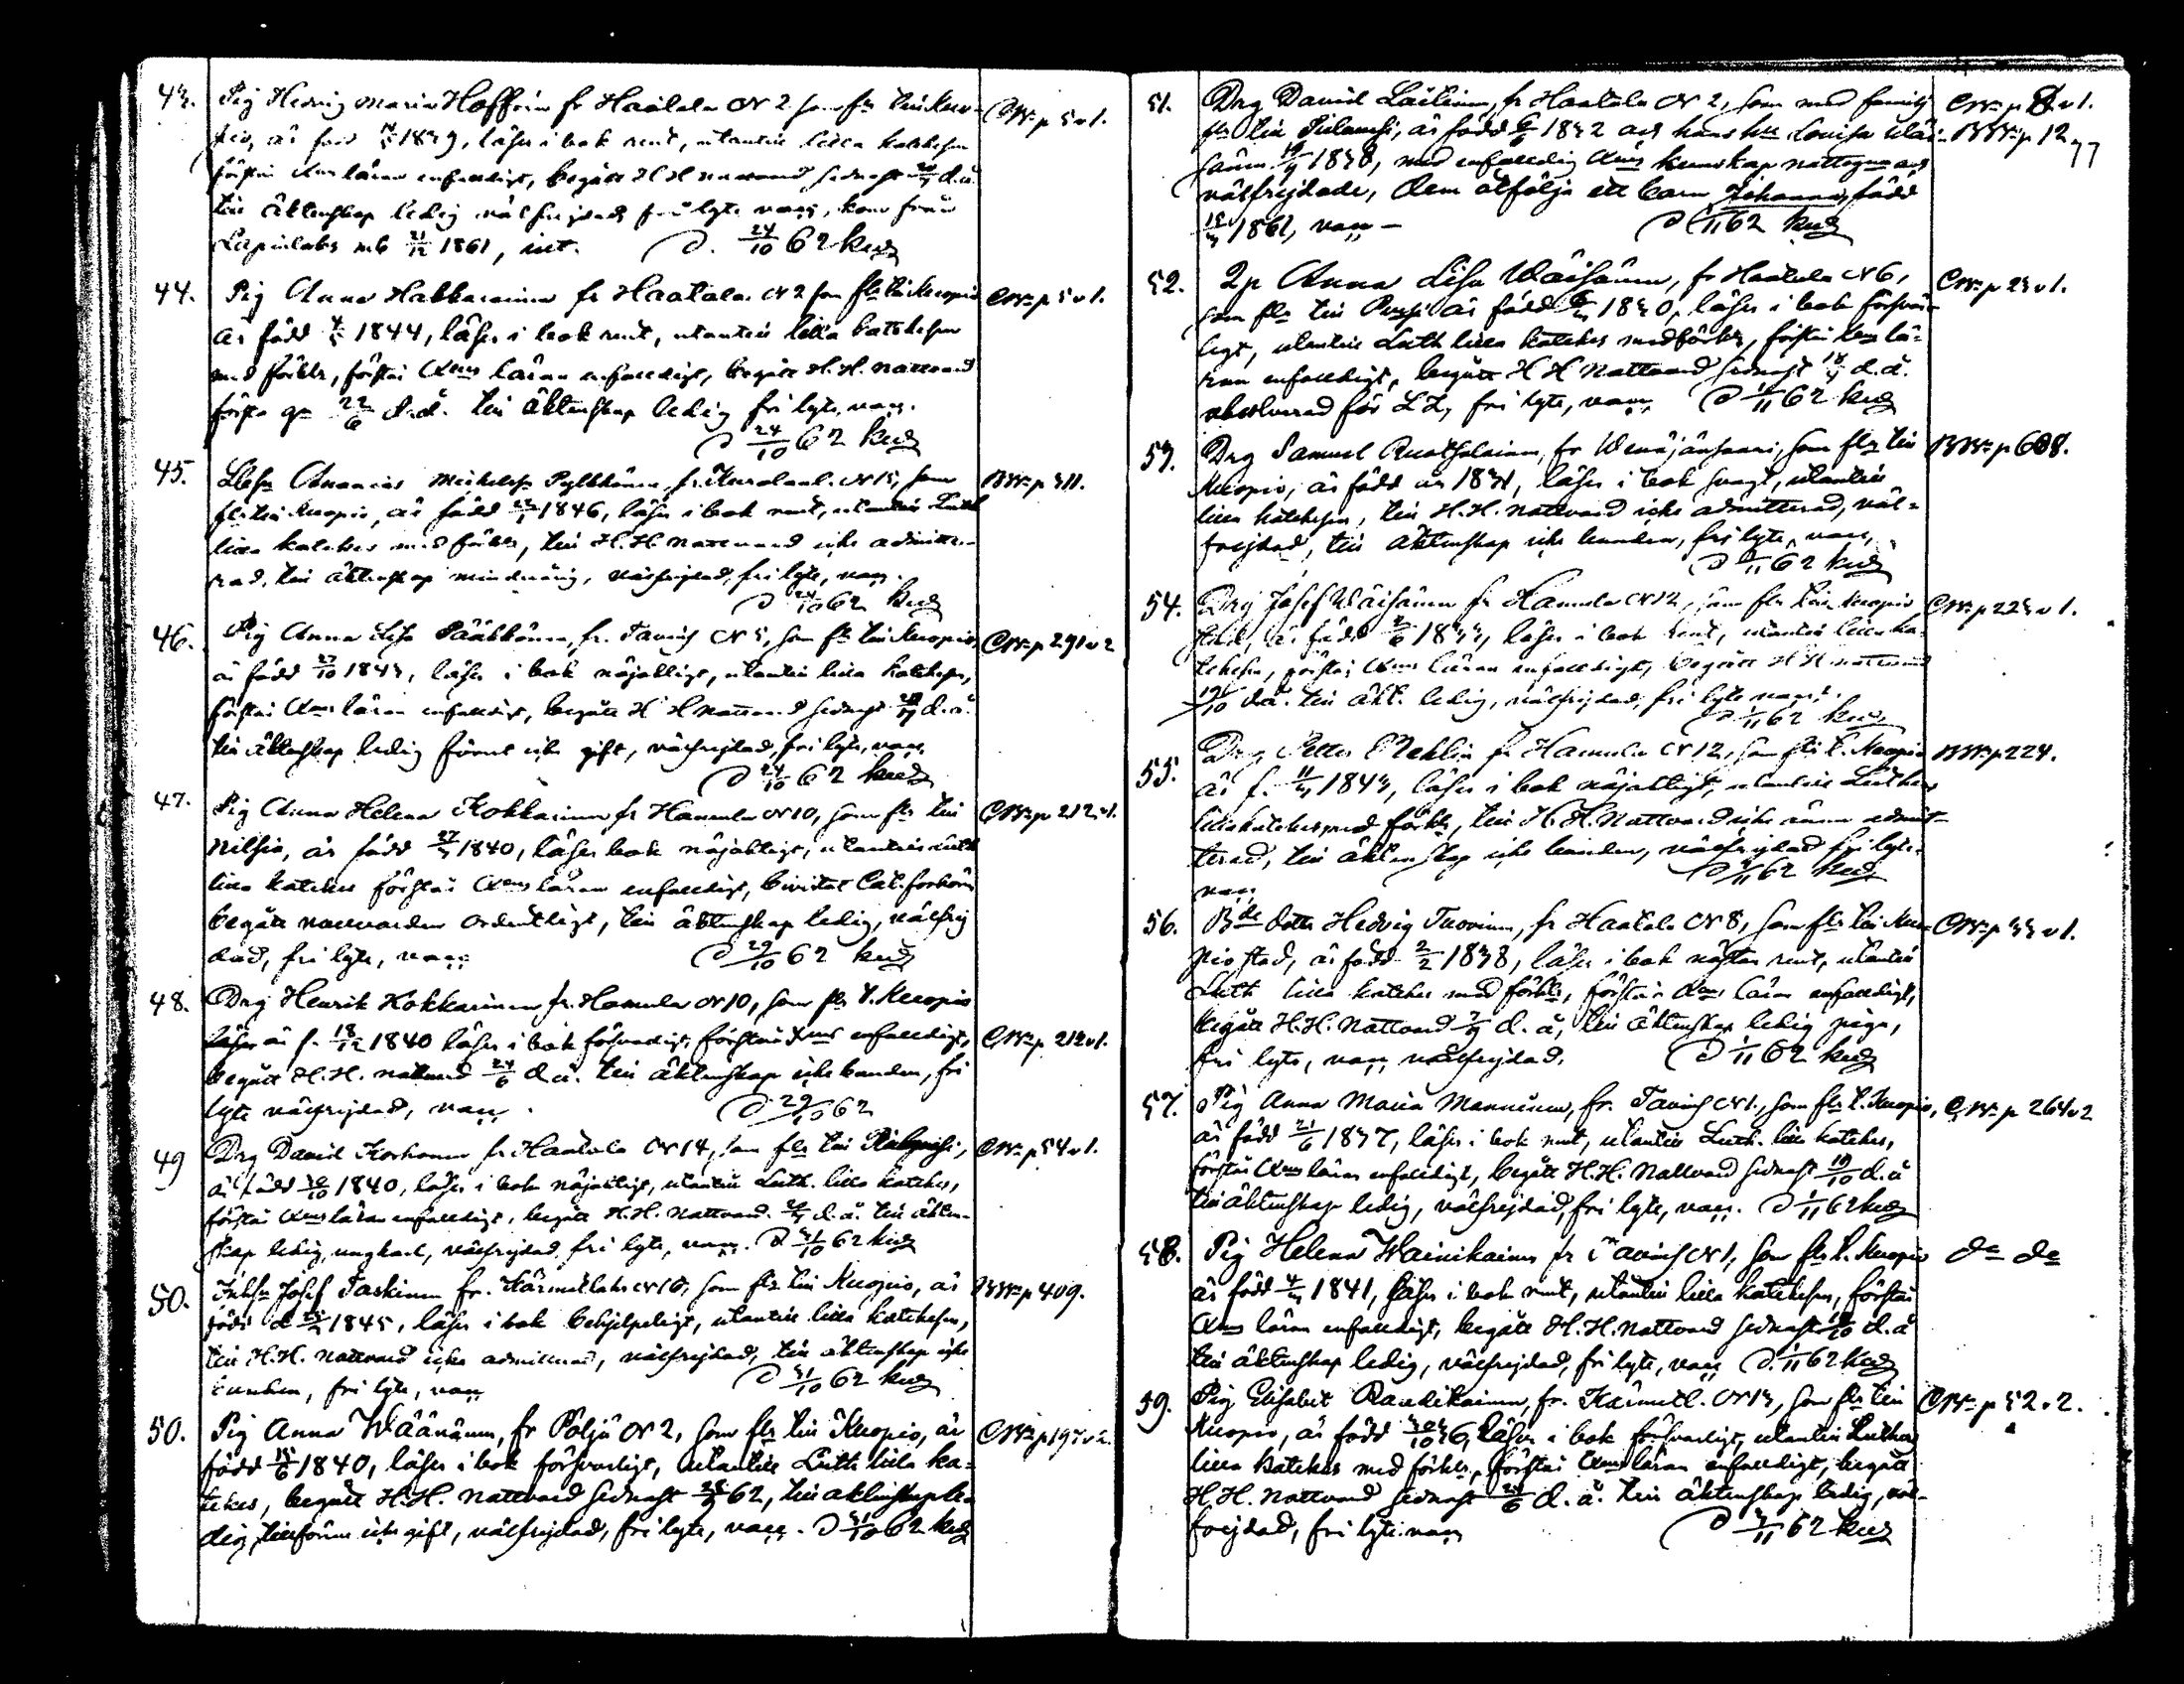 43. Pig Hedvig Maria Hoffrén fr Haatala N 2 som flr till Kuo- CNr p 5 v 1.
pio, är född 1839, läser i bok rent, utantill lilla katekesen
förstår Xms läran enfaldigt, begått H H nattvard sednast d. å.
till äktenskap ledig välfrejdad fri lyte, vacc, kom från
Lapinlaks mb 21/12 1861, int. D. 24/10 62 kud
44. Pig Anna Hakkarainen fr Haatala N 2 som flr till Kuopio CNr p 5 v 1.
är född 1844, läser i bok rent, utantill lilla katekesen
med förklr, förstår Xms läran enfaldigt, begått H. H. nattvard
första gn 22/6 d. å. till äktenskap ledig fri lyte, vacc.
D 24/10 62 kud
45. Ananias Michelss Pylkkänen, fr. N 15, som BNr p 311.
flr till Kuopio, är född 1846, läser i bok rent, utantill Luth
lilla katekes med förklr, till H. H. nattvard icke admitte-
rad, till äktenskap minderårig, välfrejdad, fri lyte, vacc.
D 24/10 62 kud
46. Pig Anna Lisa Pääkkönen, fr. Tavinj N 5, som flr till Kuopio, CNr p 291 v 2
är född 27/10 1843, läser i bok nöjaktigt, utantill lilla katekesen,
förstår Xms läran enfaldigt, begått H H nattvard sednast d. å.
till äktenskap ledig förut icke gift, välfrejdad, fri lyte, vacc.
D 24/10 62 kud
47. Pig Anna Helena Kokkarinen fr Hamula N 10, som flr till CNr p 212 v 1.
Nilsiä, är född 27/3 1840, läser bok nöjaktigt, utantill Luth
lilla katekes förstår Xms läran enfaldigt, bivistat Cat. förhören
begått nattvarden ordentligt, till äktenskap ledig, välfrej
dad, fri lyte, vacc. D 29/10 62 kud
48. Drg Henrik Kokkarinen fr. Hamula N 10, som flr t. Kuopio
är f. 18/12 1840 läser i bok försvarligt, förstår Xms enfaldigt, CNr p 212 v 1.
begått H. H. nattvard 24/6 d. å. till äktenskap icke bunden, fri
lyte välfrejdad, vacc. D 29/10 62
49 Drg David Korhonen fr Haatala N 14, som flr till CNr p 54 v 1.
är född 30/10 1840, läser i bok nöjaktigt, utantill Luth. lilla katekes,
förstår Xms läran enfaldigt, begått H. H. nattvard d. å. till äkten-
skap ledig, ungkarl, välfrejdad, fri lyte, vacc. D 31/10 62 kud
50. Josef Taskinen fr. Kärmetlaks N 10, som flr till Kuopio, är BNr p 409.
född d 1845, läser i bok behjelpeligt, utantill lilla katekesen,
till H. H. nattvard icke admitterad, välfrejdad, till äktenskap icke
bunden, fri lyte, vacc. D 31/10 62 kud
50. Pig Anna Wäänänen, fr Pöljä N 2, som flr till Kuopio, är CNr p 197 v 2.
född 15/6 1840, läser i bok försvarligt, utantill Luth lilla ka-
tekes, begått H. H. nattvard sednast 62, till äktenskap le-
dig, tillförene icke gift, välfrejdad, fri lyte, vacc. D 31/10 62 kud
51. Drg David Laitinen, fr Haatala N 2, som med familj CNr p 8 v 1.
flr till Pielavesi, är född 1832 och hans hu Lovisa Wäi- BNr p 12
sänen 1838, med enfaldig Xms kunskap nattvgna och 77
välfrejdade, dem åtfölja ett barn Johanna, född
1861, vacc – D 1/11 62 kud
52. Ip Anna Lisa Wäisänen, fr Haatala N 6, CNr p 23 v 1.
som flr till är född 1830, läser i bok försvar-
ligt, utantill Luth lilla katekes med förklr, förstår Xms lä-
ran enfaldigt, begått H H nattvard sednast d. å.
absolverad för LL, fri lyte, vacc. D 1/11 62 kud
53. Drg Samuel Ruotsalainen, fr Wenäjänsaari, som flr till BNr p 608.
Kuopio, är född år 1831, läser i bok svagt, utantill
lilla katekesen, till H. H. nattvard icke admitterad, väl-
frejdad, till äktenskap icke bunden, fri lyte, vacc.
D 1/11 62 kud
54. Drg Josef Wäisänen fr Hamula N 12, som flr till Kuopio CNr p 223 v 1.
stad, är född 1833, läser i bok rent, utantill lilla ka-
tekesen, förstår Xms läran enfaldigt, begått H H nattvard
19/10 d. å. till äkt. ledig, välfrejdad, fri lyte vacc.
D 1/11 62 kud
55. Drg Petter Rehlin fr Hamula N 12, som flr t. Kuopio BNr p 224.
är f. 1843, läser i bok nöjaktigt, utantill Luthers
lilla katekes med förklr, till H. H. Nattvard icke ännu admit-
terad, till äktenskap icke bunden, välfrejdad fri lyte
vacc. D 1/11 62 kud
56. Bde dotter Hedvig Tuovinen, fr Haatala N 8, som flr till Kuo- CNr p 33 v 1.
pio stad, är född 2/2 1838, läser i bok nästan rent, utantill
Luth lilla katekes med förklr, förstår Xms läran enfaldigt,
begått H. H. nattvard d. å, till äktenskap ledig piga,
fri lyte, vacc, välfrejdad. D 1/11 62 kud
57. Pig Anna Maria Manninen, fr. Tavinj N 1, som flr t. Kuopio, CNr p 264 v 2
är född 21/6 1837, läser i bok rent, utantill Luth. lilla katekes,
förstår Xms läran enfaldigt, begått H. H. nattvard sednast 19/10 d. å
till äktenskap ledig, välfrejdad, fri lyte, vacc. D 1/11 62 kud
58. Pig Helena Wainikainen fr Tavinj N 1, som flr t. Kuopio do do
är född 1841, läser i bok rent, utantill lilla katekesen, förstår
Xms läran enfaldigt, begått H. H. nattvard sednast 19/10 d. å
till äktenskap ledig, välfrejdad, fri lyte, vacc D. 1/11 62 kud
59. Pig Elisabet Raudikainen, fr. Kärmetl. N 13, som flr till CNr p 52 v 2.
Kuopio, är född 36, läser i bok försvarligt, utantill Luthers
lilla katekes med förklr, förstår Xms läran enfaldigt, begått
H. H. nattvard sednast 24/6 d. å. till äktenskap ledig, väl-
frejdad, fri lyte vacc D 3/11 62 kud